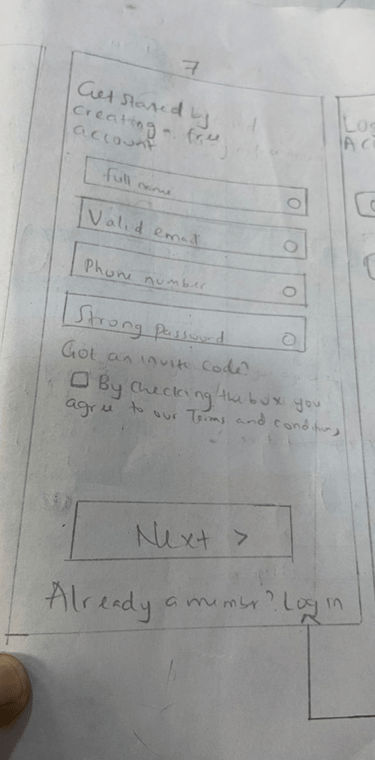 7
Get started by
creating a free
account
Full name
Valid email
Phone number
Strong Password
Got an invite code?
By checking the box you
agree to our Terms and conditions
Next >
Already a member? Log in
Log
Ac